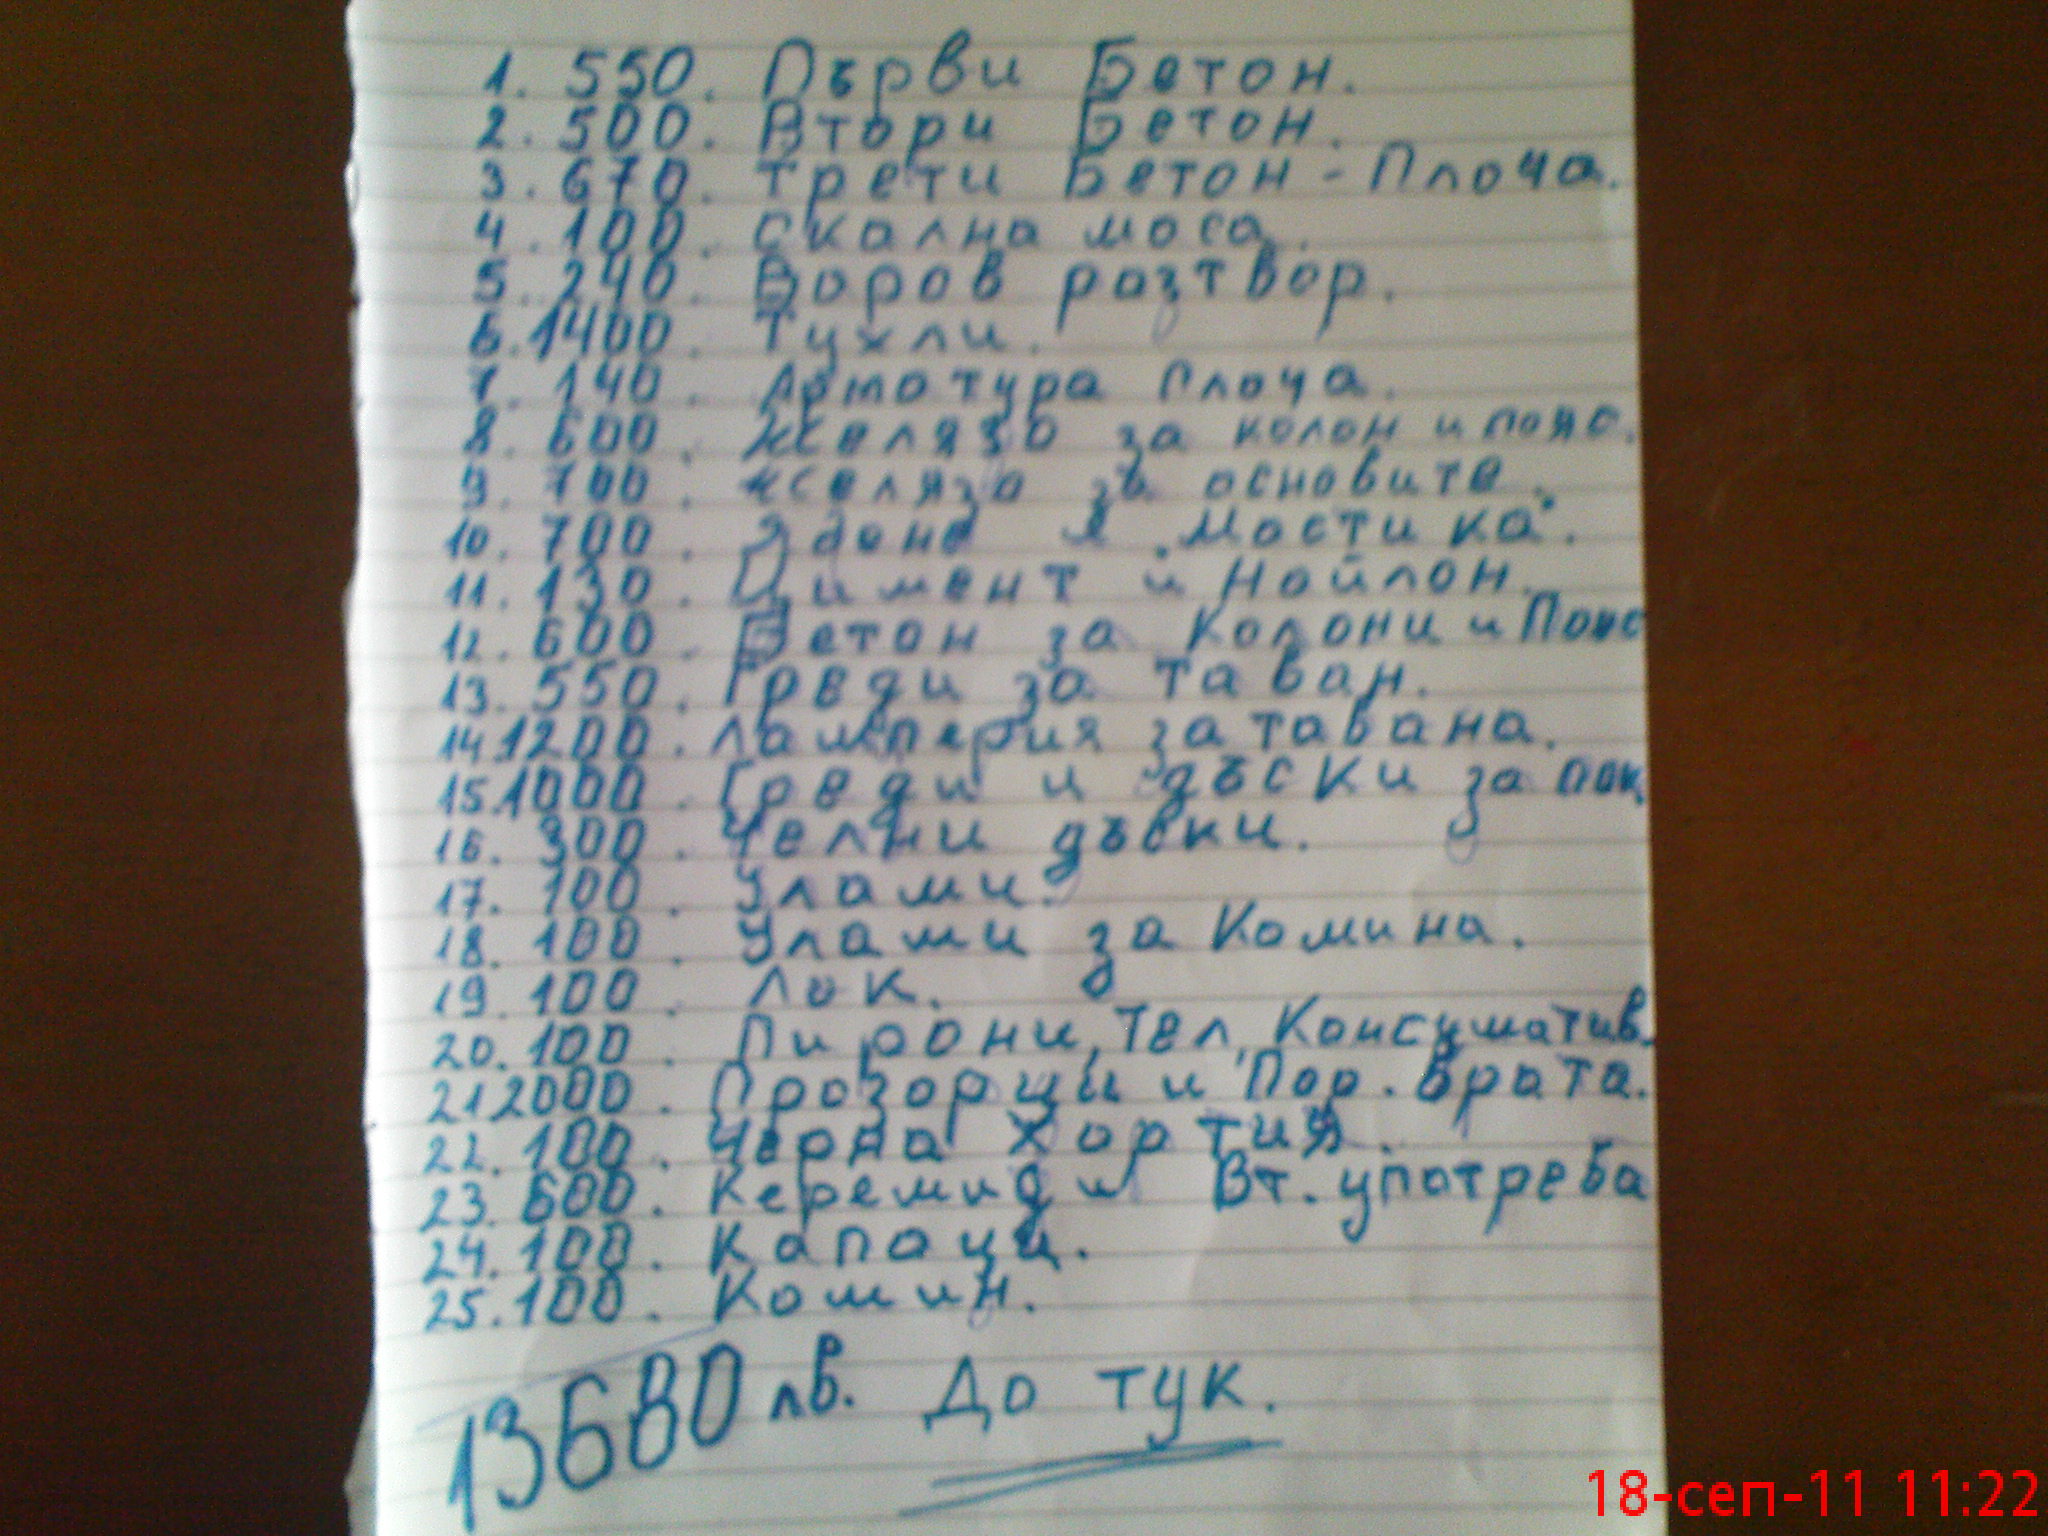 1. 550. Първи Бетон.
2. 500. Втори Бетон.
3. 670. Трети Бетон - Плоча.
4. 100. Скална маса.
5. 240. Варов разтвор.
6. 1400. Тухли.
7. 140. Арматура Плоча.
8. 600. Желязо за колон и пояс.
9. 700. Желязо за основите.
10. 700. и „Мастика".
11. 130. Цимент и Найлон.
12. 600. Бетон за Колони и Пояс
13. 550. Греди за таван.
14. 1200. Ламперия за тавана.
15. 1000. Греди и дъски за пок.
16. 300. Челни дъски.
17. 100. Улами.
18. 100. Улами за Комина.
19. 100. Лак.
20. 100. Пирони, Тел, Консуматив.
21 2000. Прозорци и Пор. Врата.
22. 100. Черна Хартия.
23. 600. Керемиди Вт. употреба
24. 100. Капаци.
25. 100. Комин.
13680 лв. До тук.
18-сеп-11 11:22